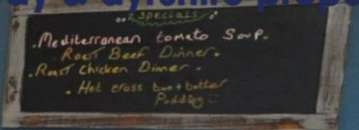 Specials
. Mediterranean tomato Soup.
Roast Beef Dinner.
. Roast Chicken Dinner.
. Hot cross bun + butter
Pudding